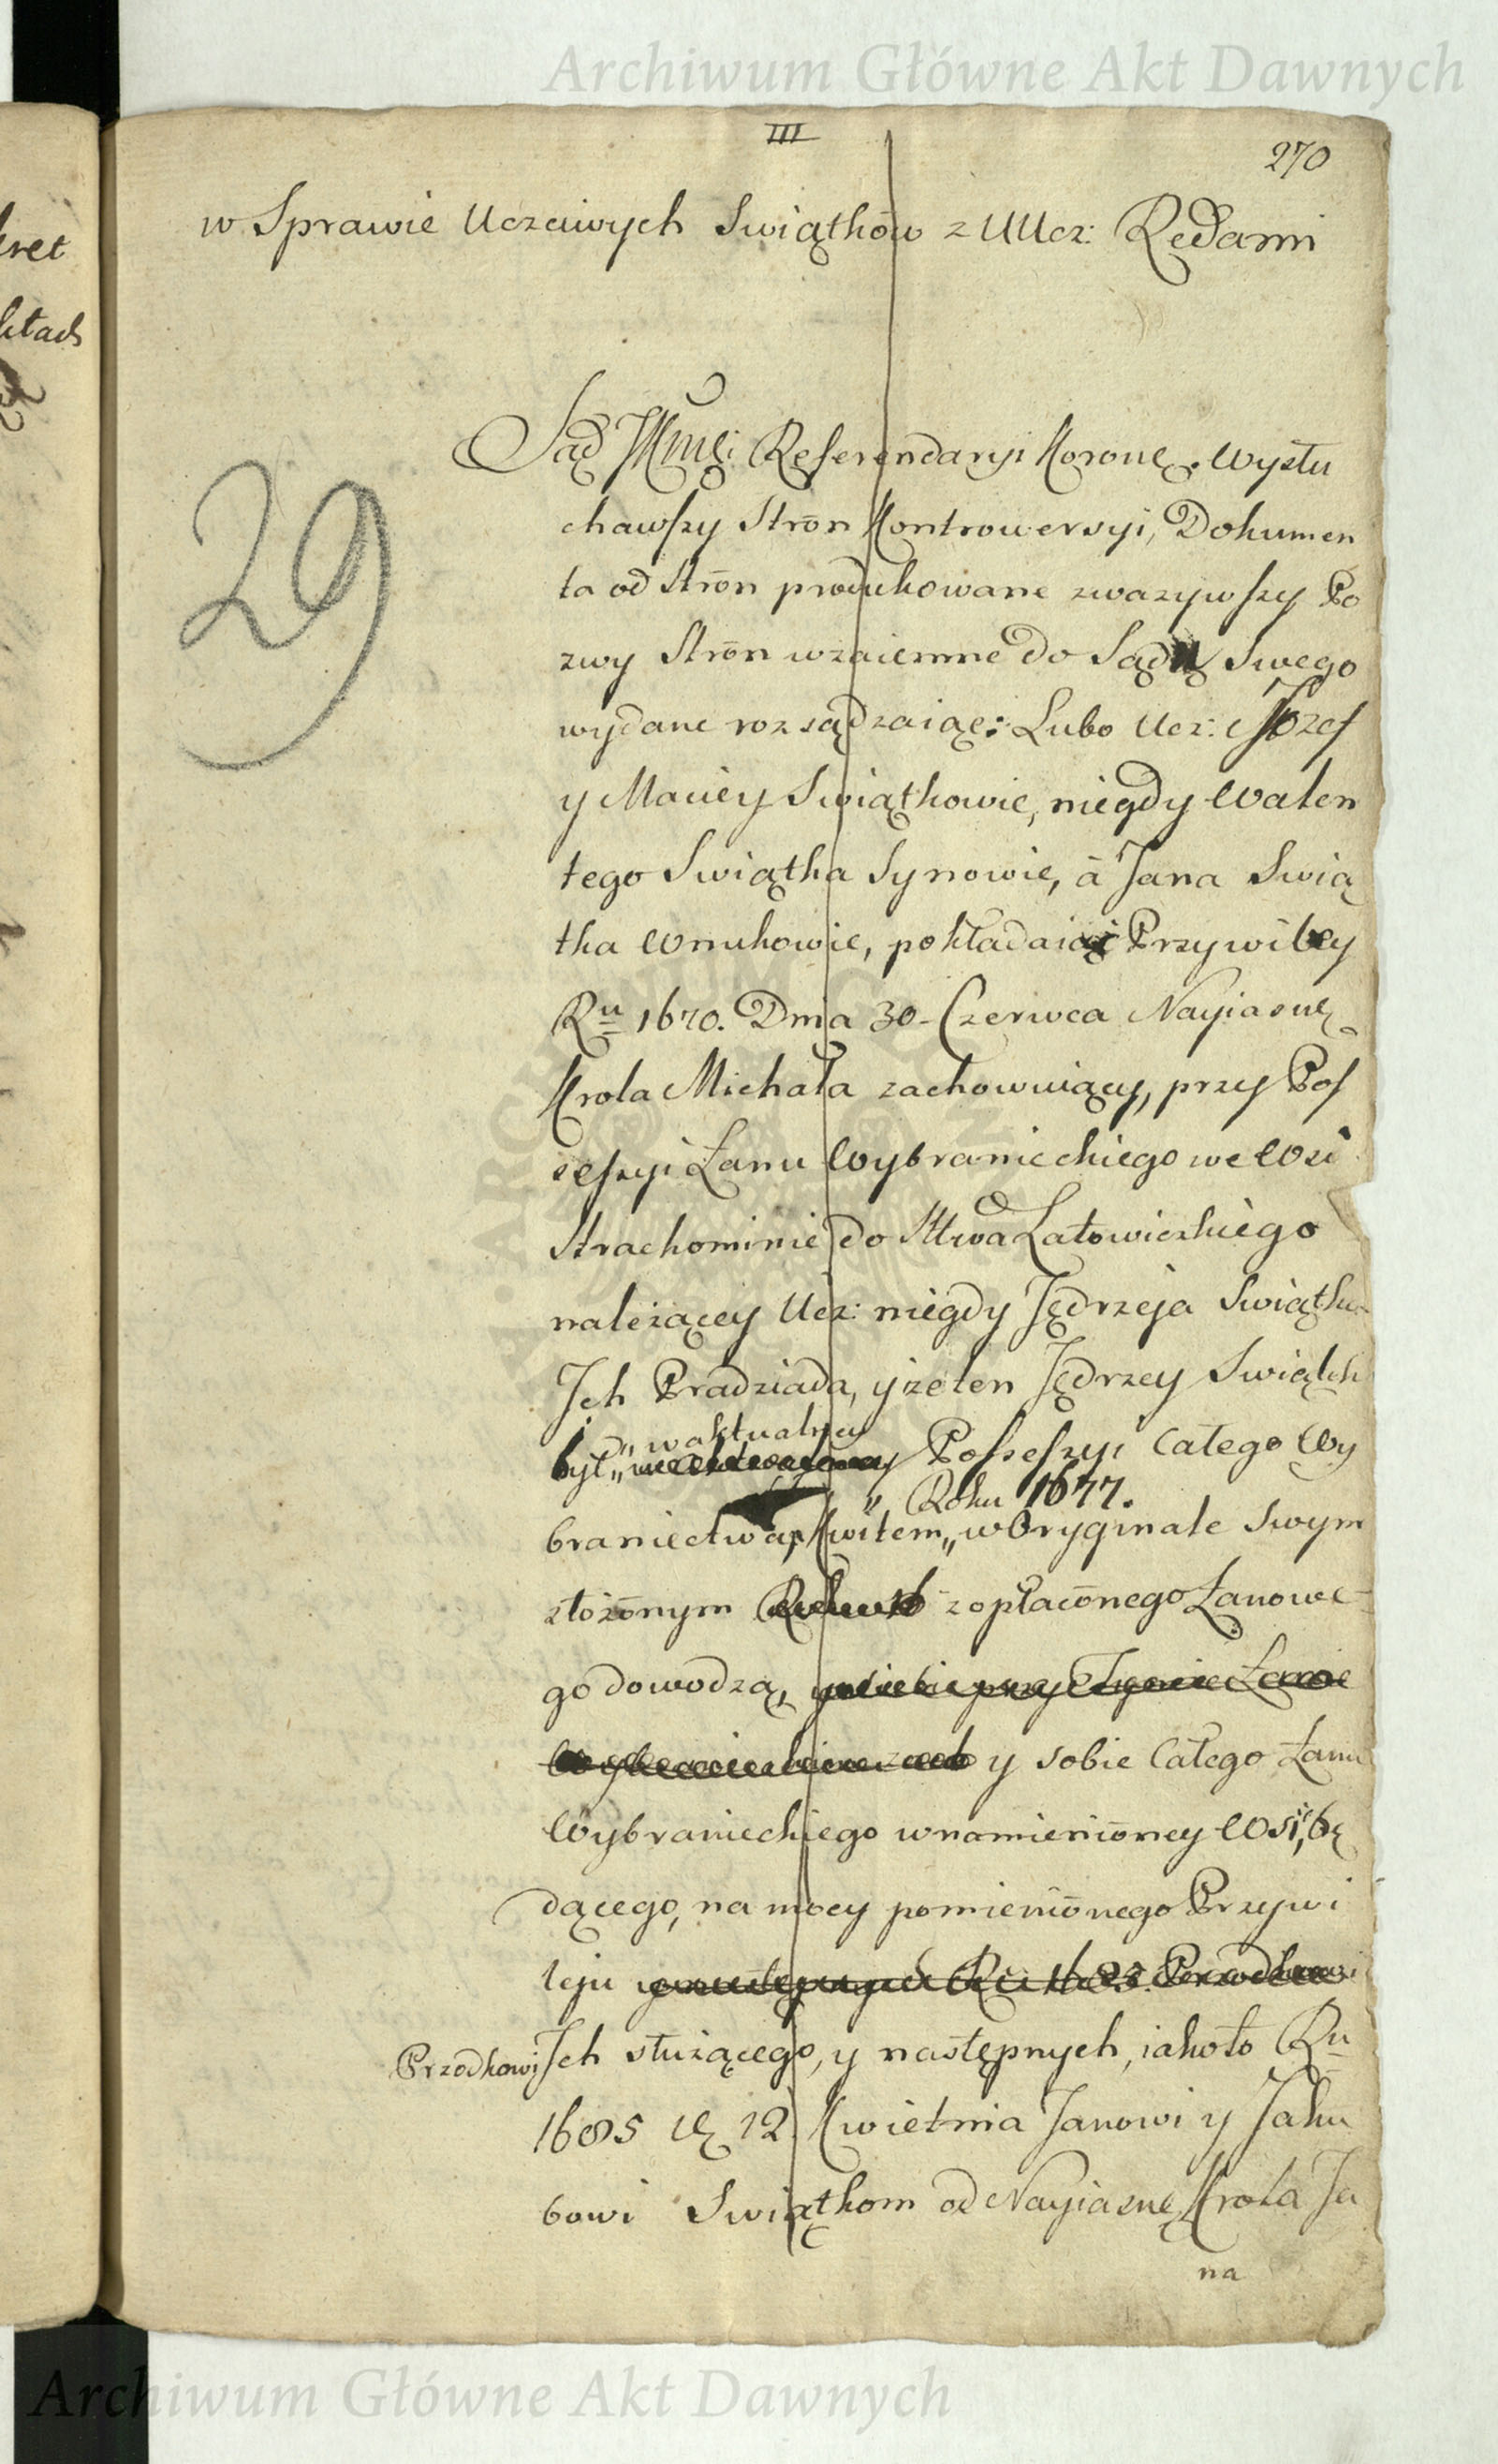 Archiwum Główne Akt Dawnych
III
270
w Sprawie Uczciwych Swiątków z UUcz: Rędami
29
Sąd JKmci Referendaryi Koronę. Wysłu
chawszy Strōn Kontrowersyi, Dokumen
ta od Strōn produkowane zwazywszy Po
zwy Strōn wzaiemne do Sądu Swego
wydane rozsądzaiąc: Lubo Ucz: Jōzef
y Maciey Swiątkowie, niegdy Walen
tego Swiątka Synowie, à Jana Swią
tka Wnukowie, pokładaiąc Przywiley
Ru 1670. Dnia 30 Czerwca Nayiasnę
Krola Michała zachowuiący, przy Pos
seszyi Łanu Wybranieckiego we Wsi
Strachominie do Sttwa Latowickiego
należącey Ucz: niegdy Jędrzeja Swiątka
Ich Pradziada, y ze ten Jędrzey Swiątek
w aktualney
był Possessyi Całego Wy
Roku 1677.
braniectwa, Kwitem w Oryginale Swym
złożōnym z opłacōnego Łanowe
go dowodzą, y sobie Całego Łanu
Wybranieckiego w namieniōney Wsi, bę
dącego, na mocy pomieniōnego Przywi
leju
Przodkowi Ich służącego, y następnych, iako to Ru
1685 12 Kwietnia Janowi y Jaku
bowi Swiątkom od Nayiasnę Krola Ja
na
Archiwum Główne Akt Dawnych